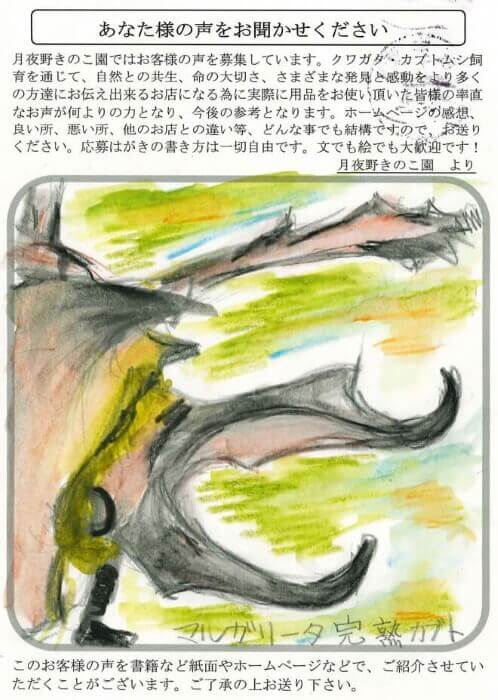 あなた様の声をお聞かせください
月夜野きのこ園ではお客様の声を募集しています。クワガタ・カブトムシ飼
育を通じて、自然との共生、命の大切さ、さまざまな発見と感動をより多く
の方達にお伝え出来るお店になる為に実際に用品をお使い頂いた皆様の率直
なお声が何よりの力となり、今後の参考となります。ホームページの感想、
良い所、悪い所、他のお店との違い等、どんな事でも結構ですので、お送り
ください。応募はがきの書き方は一切自由です。文でも絵でも大歓迎です！
月夜野きのこ園　より
マルガリータ完熟カブト
このお客様の声を書籍など紙面やホームページなどで、ご紹介させてい
ただくことがございます。ご了承の上お送り下さい。